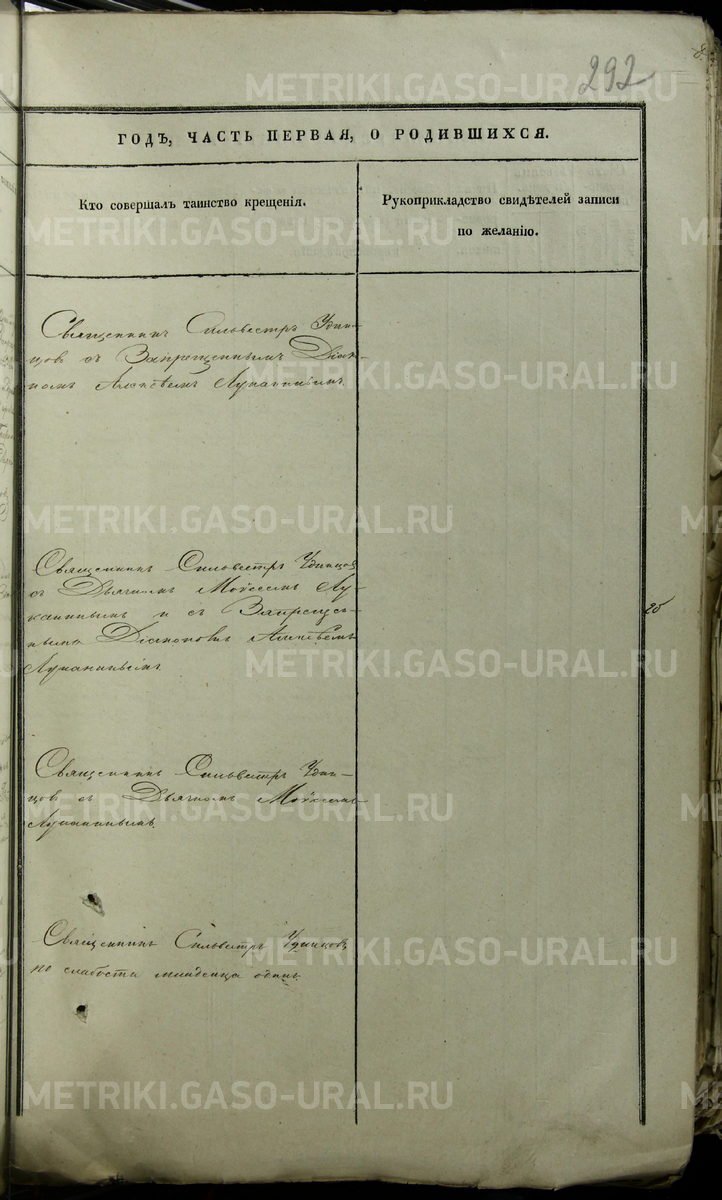 292
ГОДЪ, ЧАСТЬ ПЕРВАЯ, О РОДИВШИХСЯ.
Кто совершалъ таинство крещенія.
Рукоприкладство свидѣтелей записи
по желанію.
Священникъ Сильвестръ Удин-
цовъ съ Запрещеннымъ Діако-
номъ Алексѣемъ Луканинымъ.
Священникъ Сильвестръ Удинцовъ
съ Дьячкомъ Моѵсеемъ Лу-
канинымъ и съ Запрещен-
нымъ Діакономъ Алексѣемъ
Луканинымъ
Священникъ Сильвестръ Удин-
цовъ съ Дьячкомъ Моѵсеемъ
Луканинымъ.
Священникъ Сильвестръ Удинцовъ
по слабости младенца одинъ.
METRIKI.GASO-URAL.RU